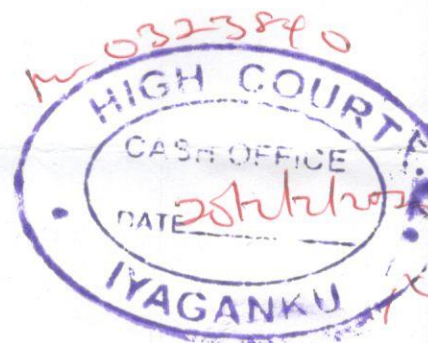 0323840
HIGH COURT
CASH OFFICE
DATE
IYAGANKU